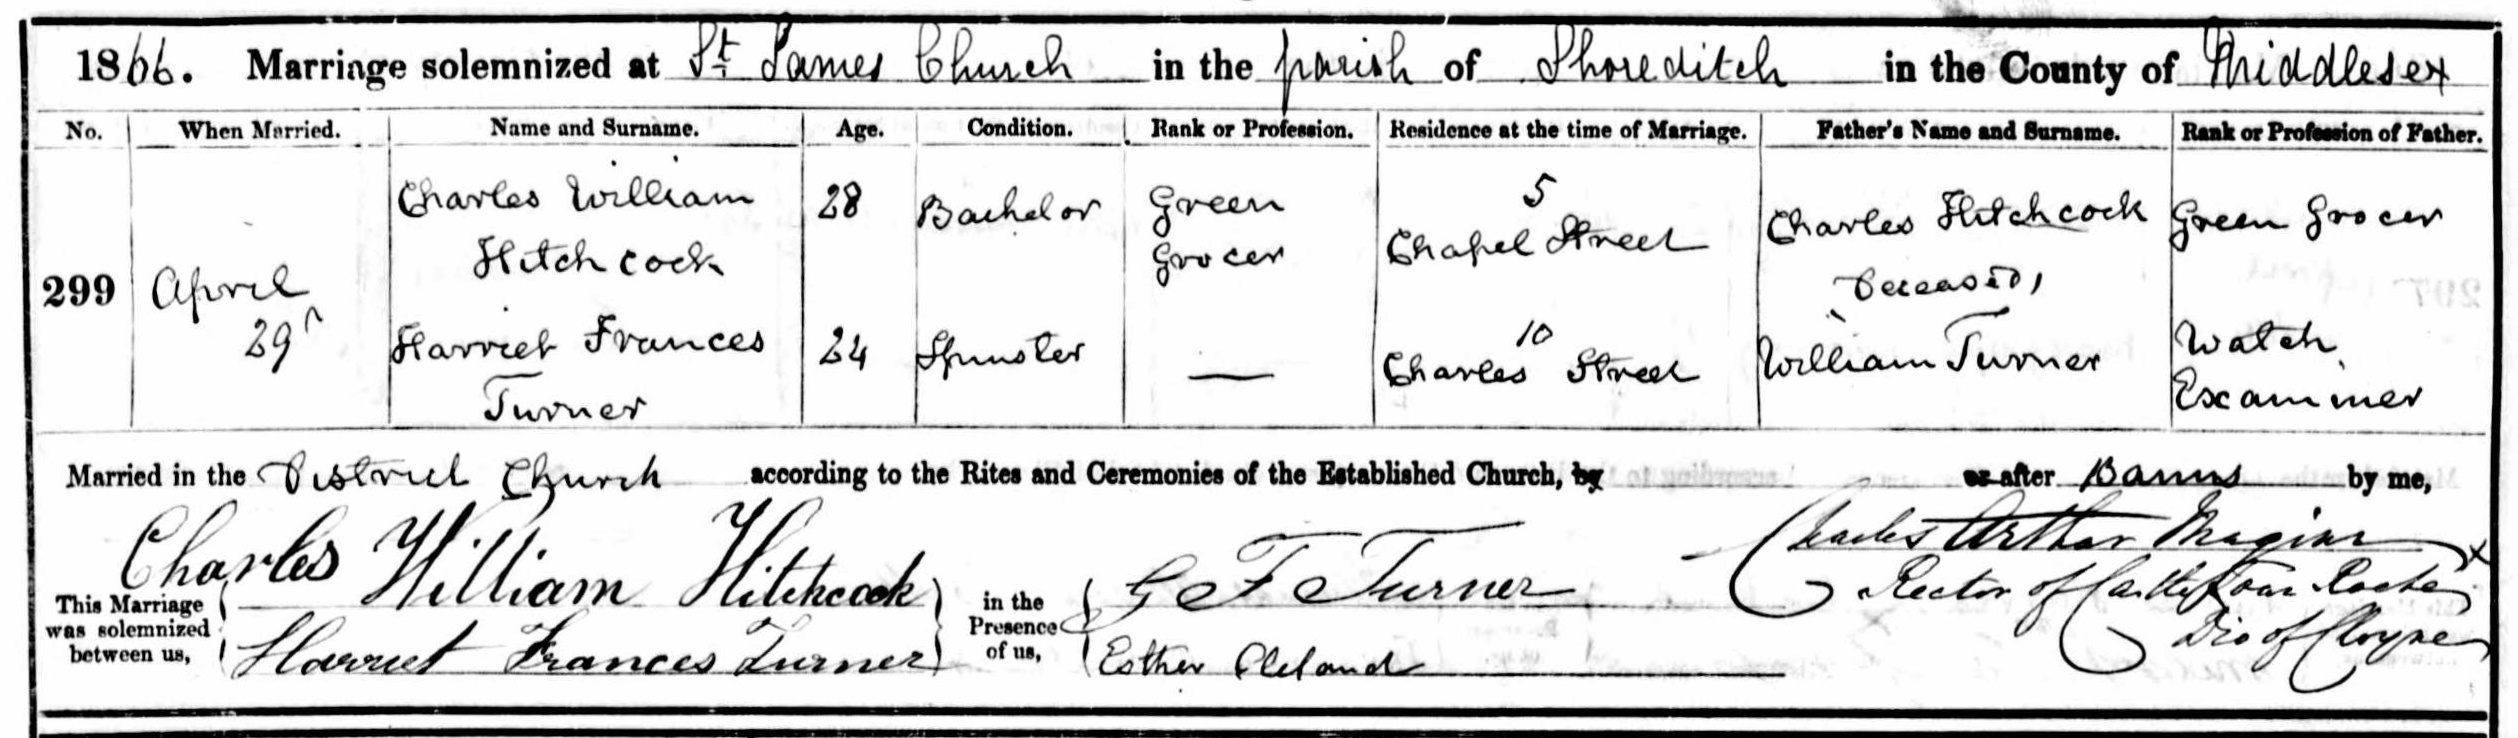 1866. Marriage solemnized at St James Church in the parish of Shoreditch in the County of Middlesex
No. When Married. Name and Surname. Age. Condition. Rank or Profession. Residence at the time of Marriage. Father's Name and Surname. Rank or Profession of Father.
299 April 29
Charles William Hitchcock 28 Bachelor Green Grocer 5 Chapel Street Charles Hitchcock Deceased Green Grocer
Harriet Frances Turner 24 Spinster — 10 Charles Street William Turner Watch Examiner
Married in the District Church according to the Rites and Ceremonies of the Established Church, by or after Banns by me,
Charles William Hitchcock
Harriet Frances Turner
This Marriage
was solemnized
between us,
in the
Presence
of us,
G F Turner
Esther Cleland
Charles Arthur Maginn
Rector of Castletown Roche
Dio of Cloyne